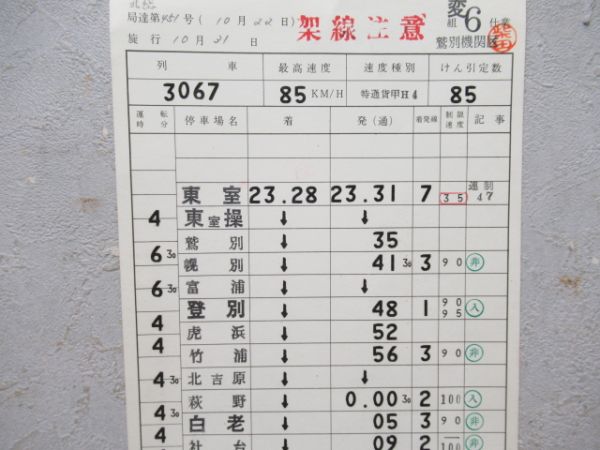 局達第451号 (10月22日) 架線注意 変6仕業
組
施行 10月21日 鷲別機関区
列車 最高速度 速度種別 けん引定数
3067 85KM/H 特通貨甲H4 85
運転時分 停車場名 着 発(通) 着発線 制限速度 記事
東室 23.28 23.31 7 35 運制47
4 東室操 ↓ ↓
鷲別 35
6 30 幌別 ↓ 41 30 3 90 非
富浦 ↓ ↓
6 30 登別 ↓ 48 1 90 95 入
4 虎浜 ↓ 52
4 竹浦 ↓ 56 3 90 非
北吉原 ↓ ↓
4 30 萩野 ↓ 0.00 30 2 100 入
4 30 白老 ↓ 05 3 90 非
4 社台 ↓ 09 2 100 非